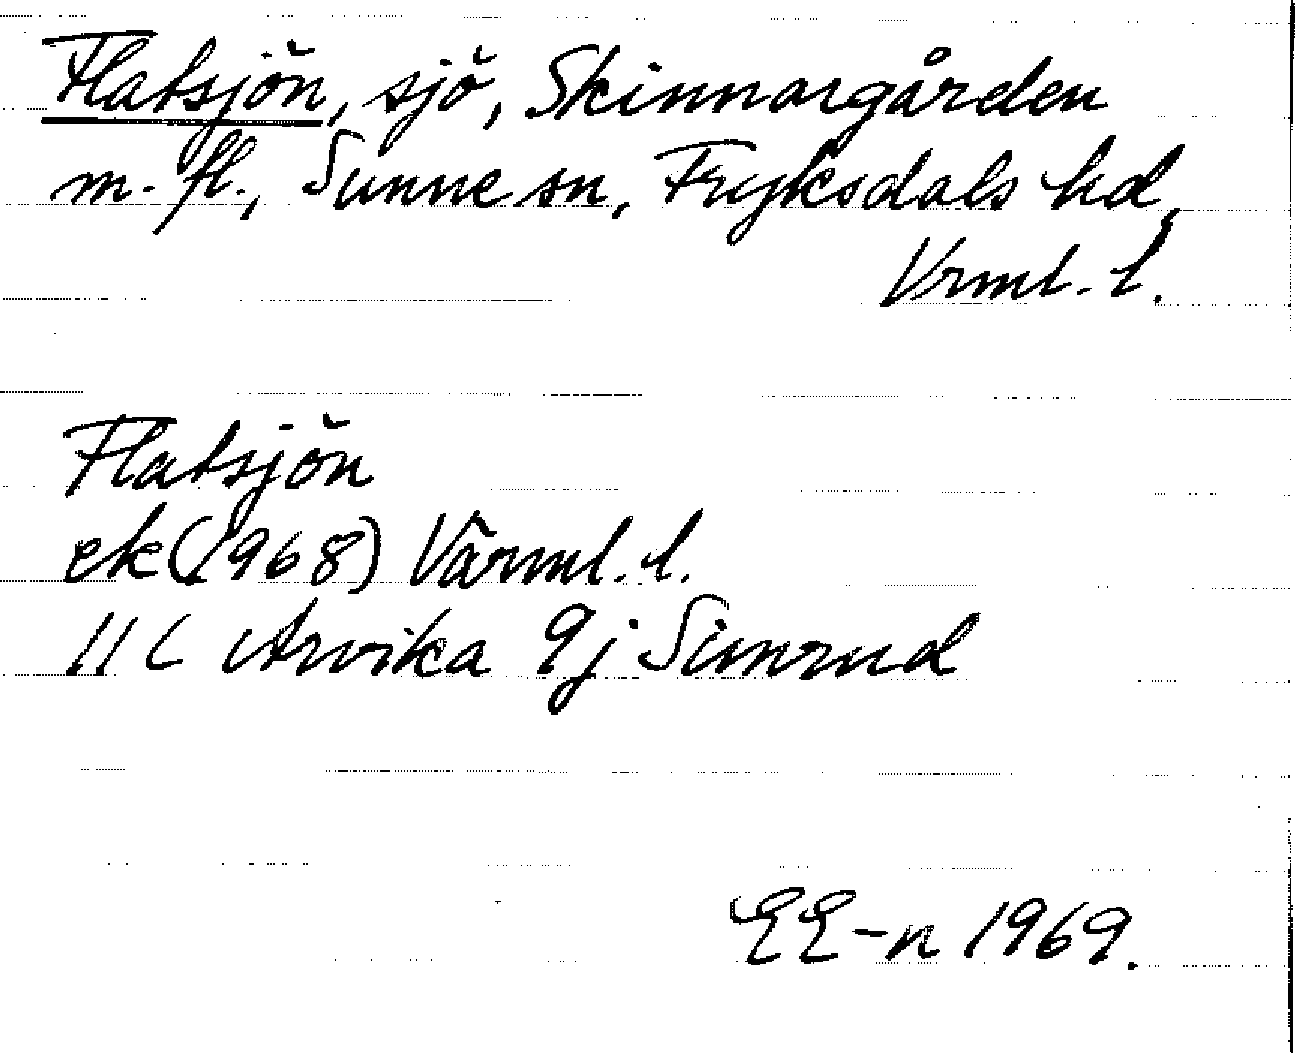 Flatsjön, sjö, Skinnargården
m. fl., Sunne sn, Fryksdals hd,
Vrml. l.
Flatsjön
ek (1968) Värml. l.
11 C Arvika 9j Simrud
EE-n 1969.